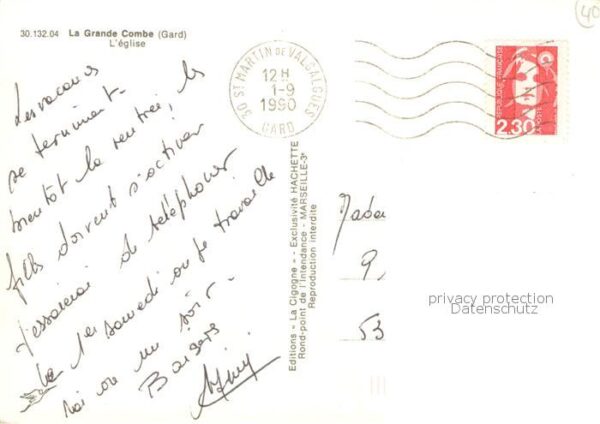 30.132.04 La Grande Combe (Gard)
L'église
40
Les vacances
se terminent
bientôt la rentrée, les
filles doivent s'activer
J'essaierai de téléphoner
le 1er samedi où je travaille
ou un soir.
Baisers
30 ST MARTIN DE VALGALGUES
12 H
1-9
1990
GARD
REPUBLIQUE FRANÇAISE
2,30
LA POSTE
Editions - La Cigogne - - Exclusivité HACHETTE
Rond-point de l'Intendance - MARSEILLE-3e
Reproduction interdite
9,
53
privacy protection
Datenschutz